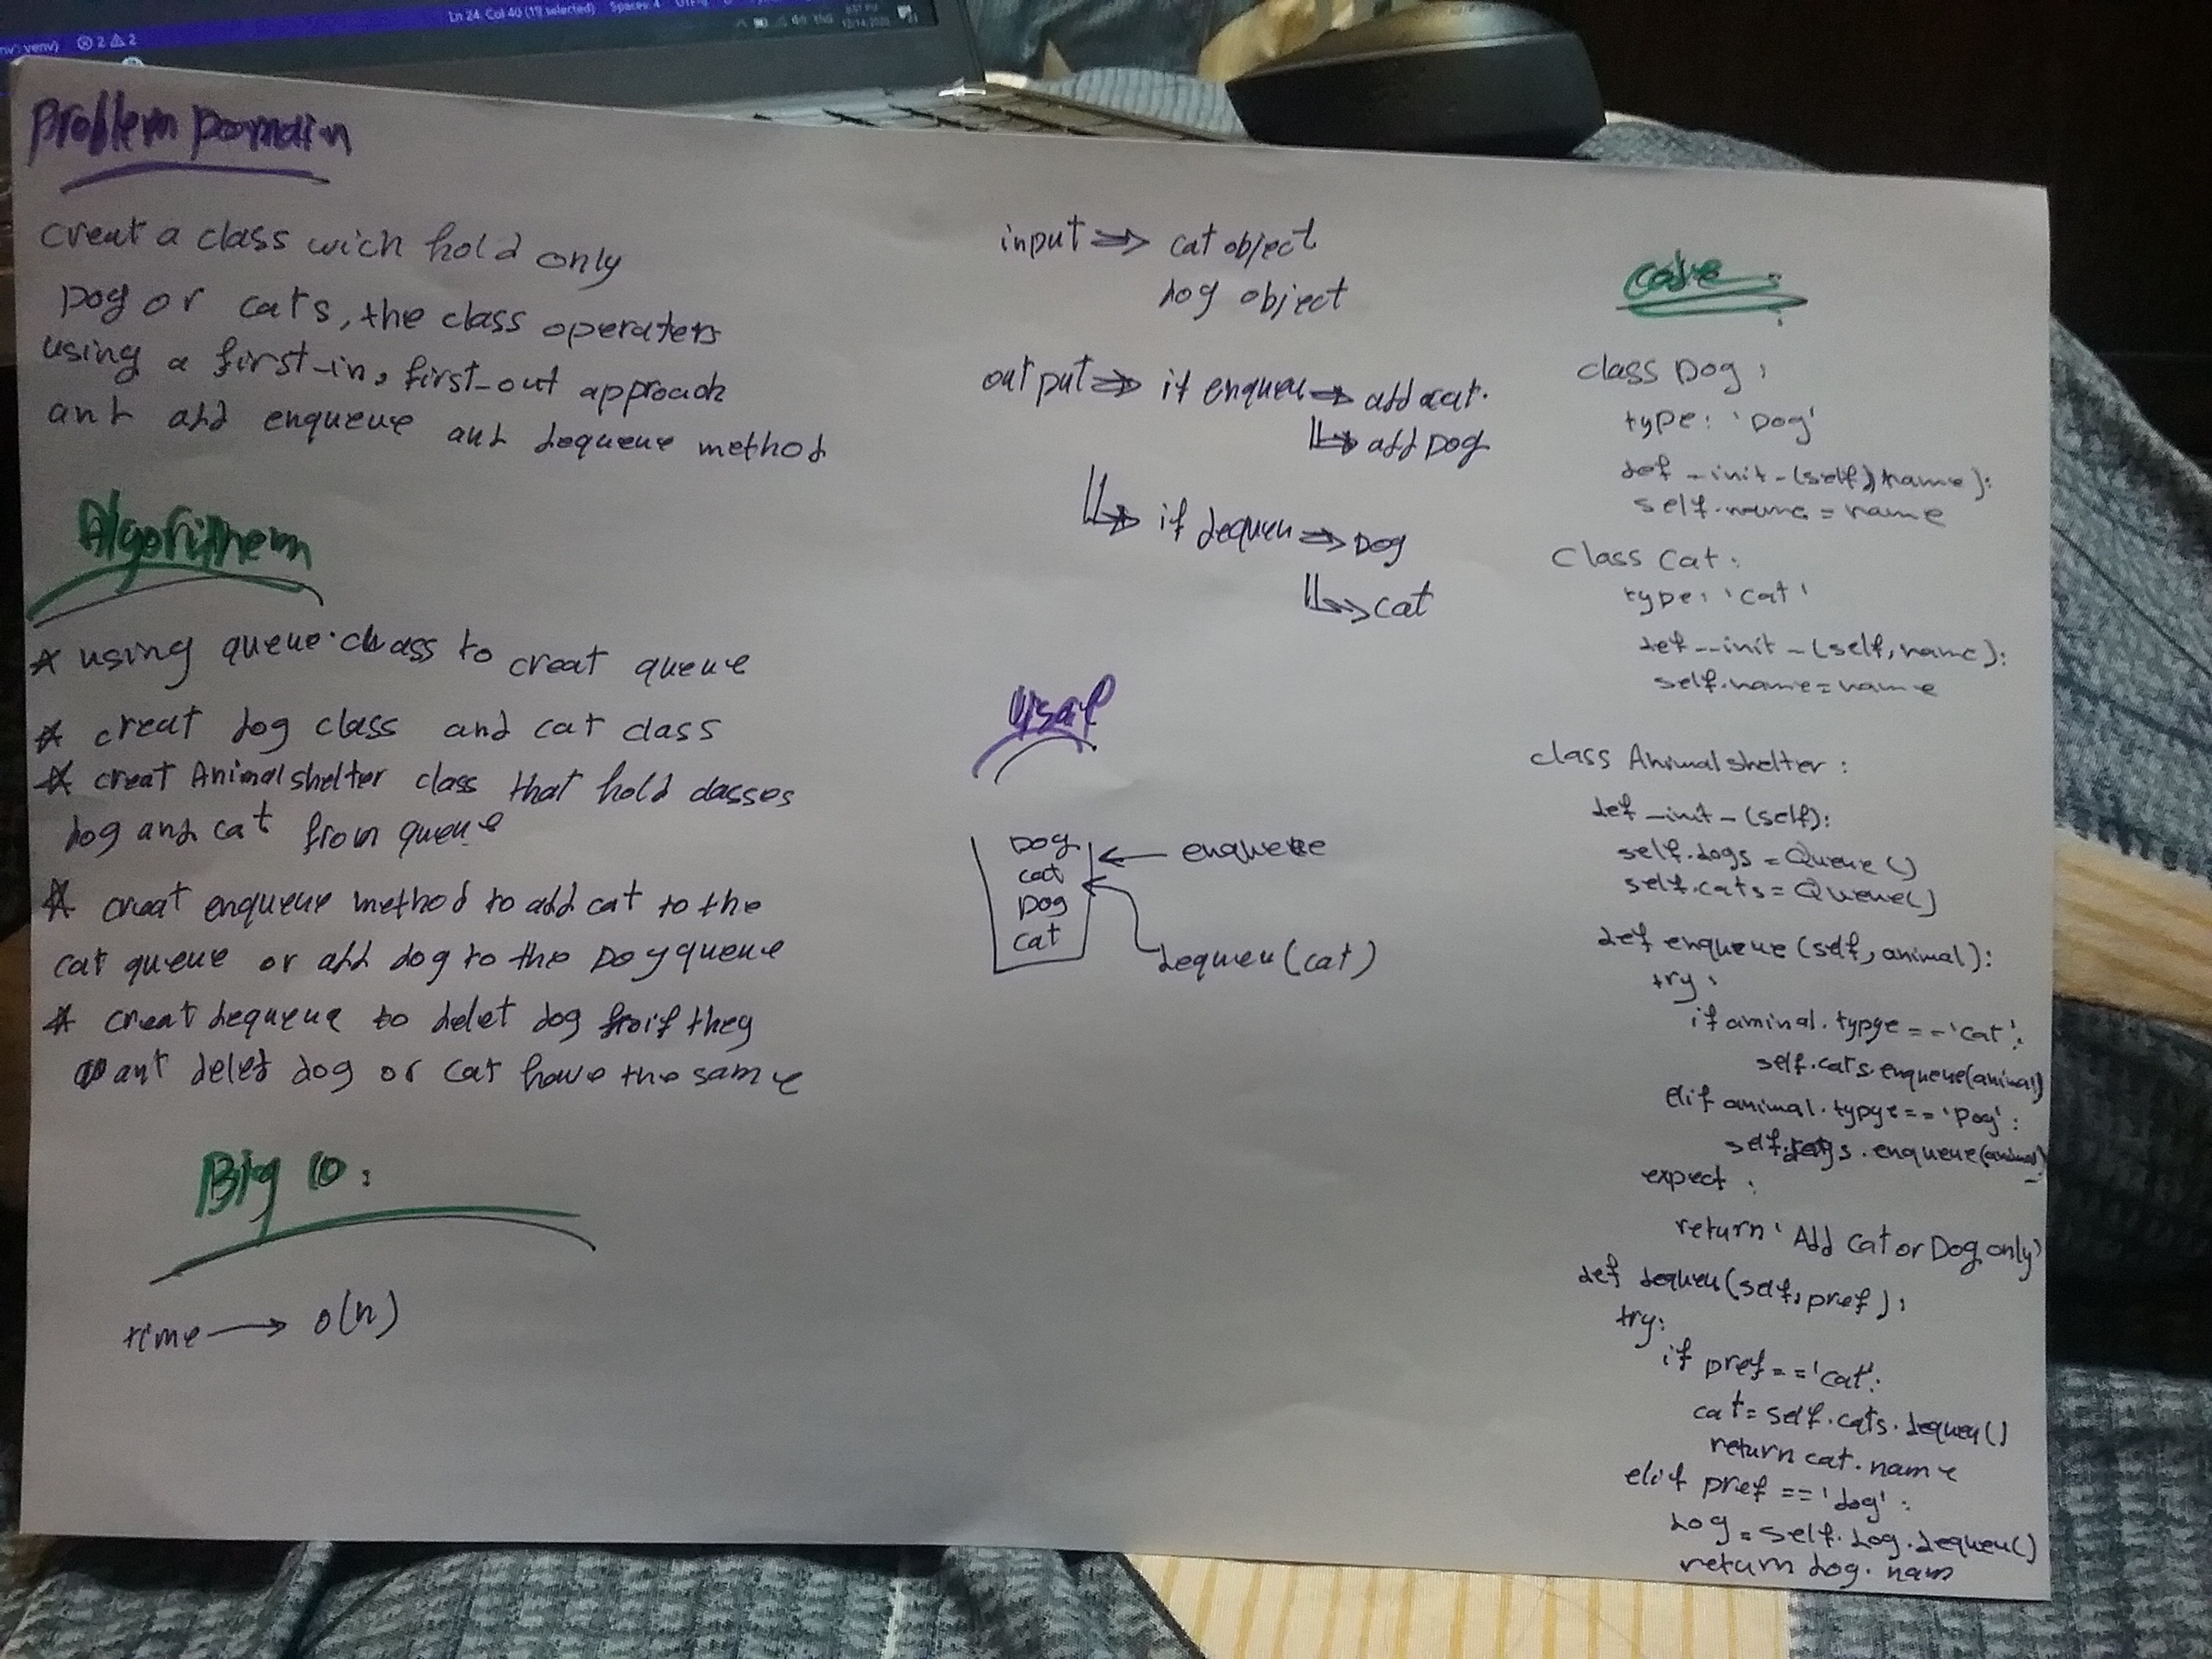 Ln 24, Col 40 (19 selected) Spaces: 4
nv': venv) 2 2
ENG
Problem Domain
creat a class wich hold only
Dog or cats, the class operaters
using a first-in, first-out approach
and add enqueue and dequeue method
Algorithem
* using queue class to creat queue
* creat dog class and cat class
* creat Animalshelter class that hold classes
dog and cat from queue
* creat enqueue method to add cat to the
cat queue or add dog to the Dog queue
* creat dequeue to delet dog if they
want delet dog or cat have the same
Big O:
time → o(n)
input ⇒ cat object
dog object
output ⇒ if enqueu ⇒ add cat.
⇒ add Dog
⇒ if dequeu ⇒ Dog
⇒ cat
Dog
cat
Dog
cat
← enqueue
dequeu(cat)
code:
class Dog:
type: 'Dog'
def _init_(self, name):
self.name = name
class Cat:
type: 'cat'
def __init_(self, name):
self.name = name
class Animalshelter:
def _init_(self):
self.dogs = Queue()
self.cats = Queue()
def enqueue (self, animal):
try:
if aminal.typye == 'cat':
self.cats.enqueue(animal)
elif animal.typye == 'Dog':
self.dogs.enqueue(animal)
expect:
return 'Add cat or Dog only'
def dequeu(self, pref):
try:
if pref == 'cat':
cat = self.cats.dequeu()
return cat.name
elif pref == 'dog':
dog = self.dog.dequeu()
return dog.nam